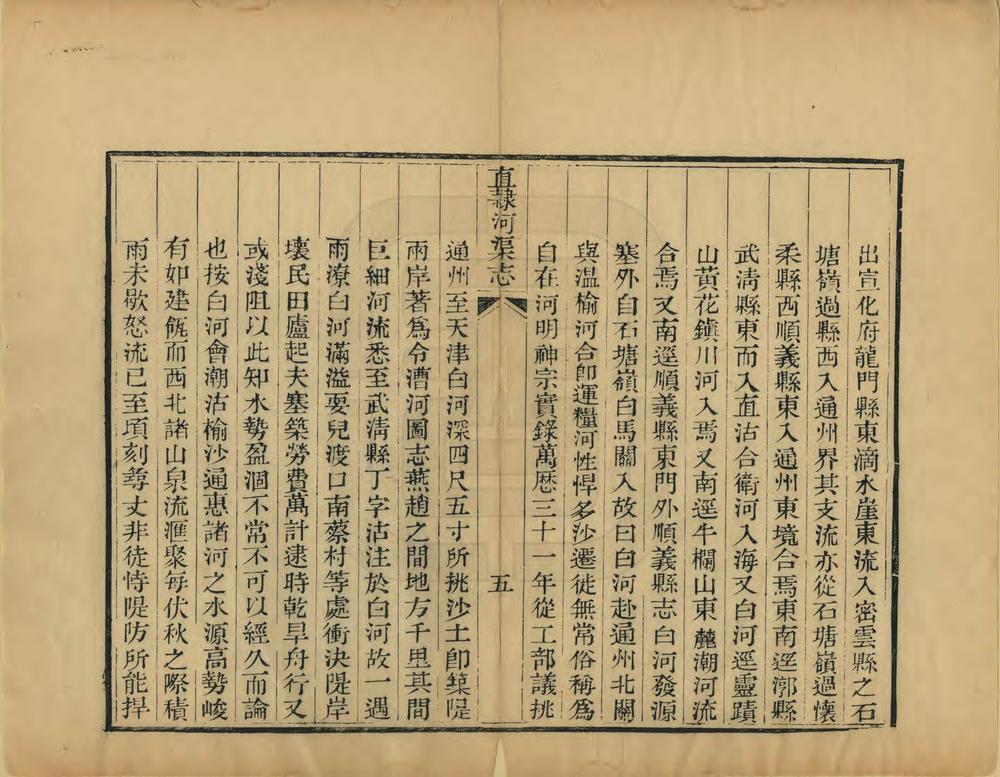 出宣化府龍門縣東滴水崖東流入密雲縣之石
塘嶺過縣西入通州界其支流亦從石塘嶺過懷
柔縣西順義縣東入通州東境合焉東南逕漷縣
武淸縣東而入直沽合衛河入海又白河逕靈蹟
山黃花鎭川河入焉又南逕牛欄山東麓潮河流
合焉又南逕順義縣東門外順義縣志白河發源
塞外自石塘嶺白馬關入故曰白河赴通州北關
與温榆河合卽運糧河性悍多沙遷徙無常俗稱爲
自在河明神宗實錄萬歷三十一年從工部議挑
直隷河渠志
五
通州至天津白河深四尺五寸所挑沙土卽築隄
兩岸著爲令漕河圖志燕趙之間地方千里其間
巨細河流悉至武淸縣丁字沽注於白河故一遇
雨潦白河滿溢耍兒渡口南蔡村等處衝決隄岸
壞民田廬起夫塞築勞費萬計逮時乾旱舟行又
或淺阻以此知水勢盈涸不常不可以經久而論
也按白河會潮沽榆沙通惠諸河之水源高勢峻
有如建瓴而西北諸山泉流滙聚每伏秋之際積
雨未歇怒流已至頃刻尋丈非徒恃隄防所能捍